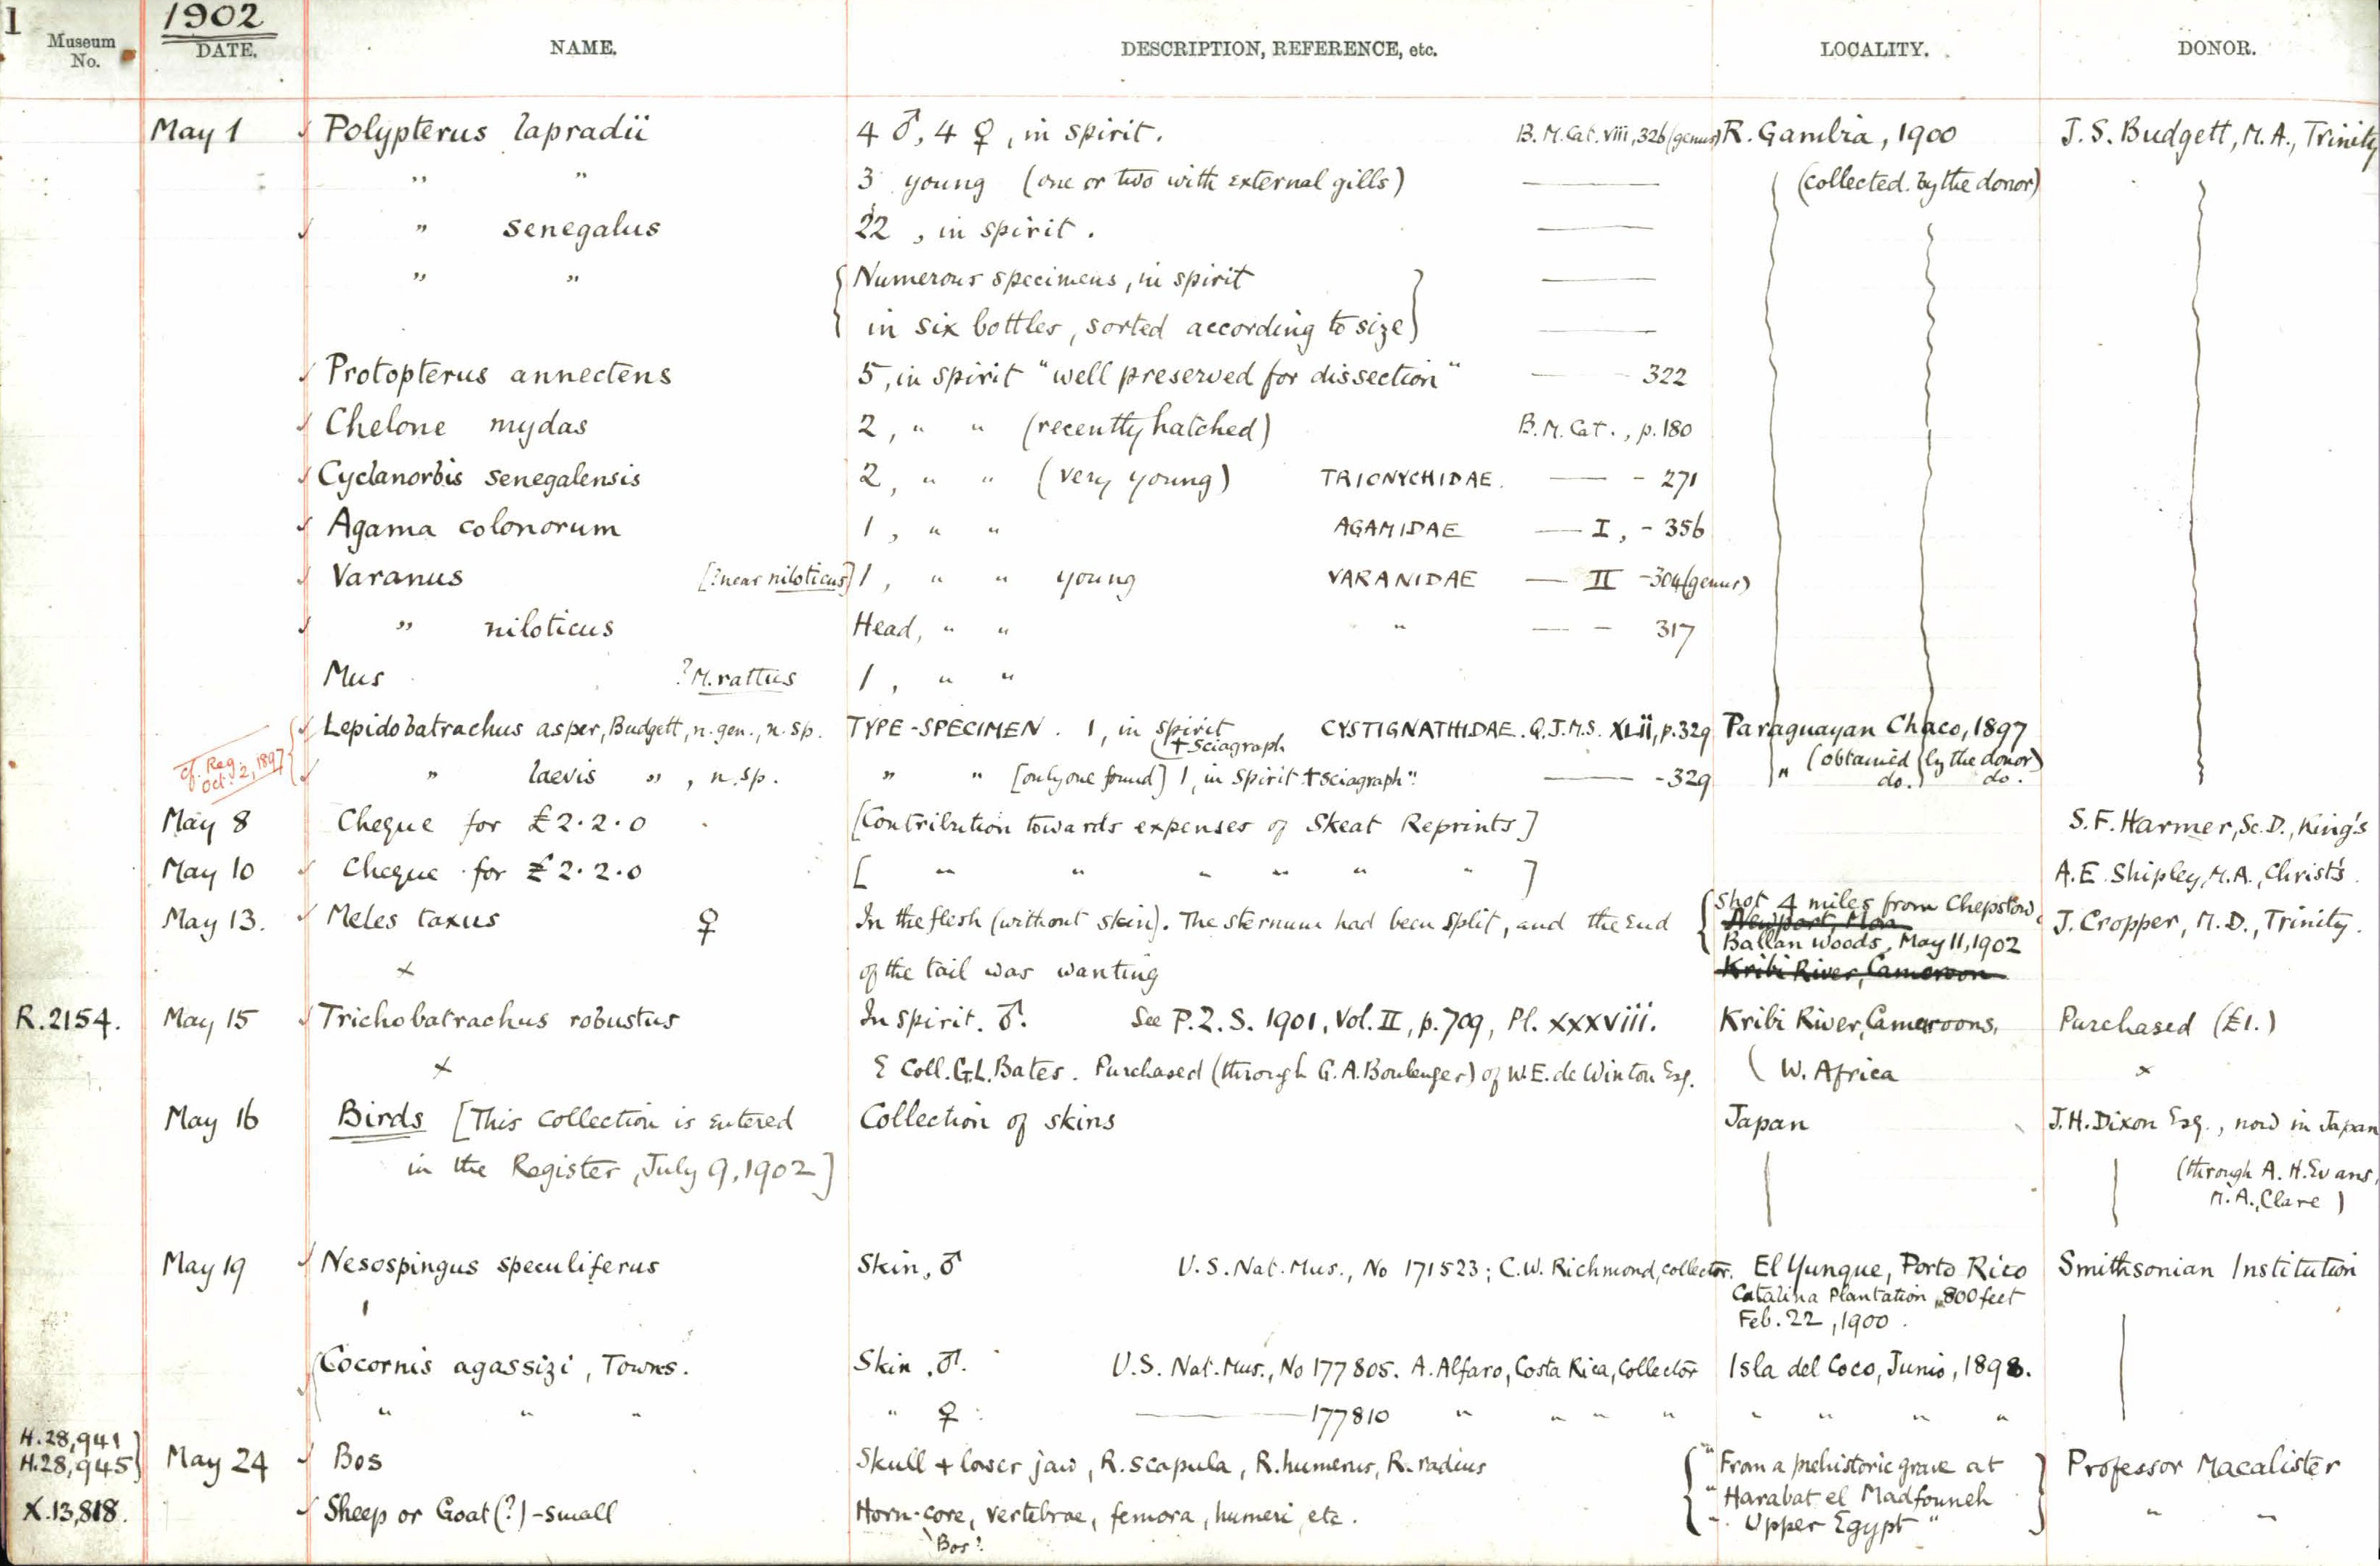 1
1902
Museum No. DATE. NAME. DESCRIPTION, REFERENCE, etc. LOCALITY. DONOR.
May 1 Polypterus lapradii 4 ♂, 4 ♀, in spirit. B.M. Cat. viii, 326 (genus) R. Gambia, 1900 J. S. Budgett, M.A., Trinity
" " 3 young (one or two with external gills) —— (collected by the donor)
" senegalus 22, in spirit. ——
" " { Numerous specimens, in spirit } ——
in six bottles, sorted according to size ——
Protopterus annectens 5, in spirit "well preserved for dissection" —— 322
Chelone mydas 2, " " (recently hatched) B.M. Cat., p. 180
Cyclanorbis senegalensis 2, " " (very young) TRIONYCHIDAE. —— - 271
Agama colonorum 1, " " AGAMIDAE —— I, - 356
Varanus [? near niloticus] 1, " " young VARANIDAE — II - 304 (genus)
" niloticus Head, " " " — - 317
Mus ? M. rattus 1, " "
Lepidobatrachus asper, Budgett, n. gen., n. sp. TYPE-SPECIMEN. 1, in spirit + sciagraph CYSTIGNATHIDAE. Q.J.M.S. XLii, p. 329 Paraguayan Chaco, 1897
(obtained by the donor)
cf. Reg. Oct. 2, 1897
" laevis ", n. sp. " " [only one found] 1, in spirit + sciagraph " —— - 329 " do. do.
May 8 Cheque for £2.2.0 [Contribution towards expenses of Skeat Reprints] S. F. Harmer, Sc. D., King's
May 10 Cheque for £2.2.0 [ " " " " " " ] A. E. Shipley, M.A., Christ's.
May 13. Meles taxus ♀ In the flesh (without skin). The sternum had been split, and the end { Shot 4 miles from Chepstow J. Cropper, M.D., Trinity.
Newport, Mon
Ballan Woods, May 11, 1902
x of the tail was wanting Kribi River, Cameroon
R. 2154. May 15 Trichobatrachus robustus In spirit. ♂. See P. Z. S. 1901, Vol. II, p. 709, Pl. xxxviii. Kribi River, Cameroons, Purchased (£1.)
x E Coll. G. L. Bates. Purchased (through G. A. Boulenger) of W. E. de Winton Esq. ( W. Africa x
May 16 Birds [This collection is entered Collection of skins Japan J. H. Dixon Esq., now in Japan
in the Register, July 9, 1902] (through A. H. Evans,
M.A., Clare)
May 19 Nesospingus speculiferus Skin, ♂ U.S. Nat. Mus., No 171523; C. W. Richmond, collector. El Yunque, Porto Rico Smithsonian Institution
Catalina Plantation, 800 feet
Feb. 22, 1900.
Cocornis agassizi, Towns. Skin, ♂. U.S. Nat. Mus., No 177805. A. Alfaro, Costa Rica, Collector Isla del Coco, Junio, 1898.
" " " " ♀ —— 177810 " " " " " " " "
H. 28,941
H. 28,945) May 24 Bos Skull + lower jaw, R. scapula, R. humerus, R. radius { "From a prehistoric grave at } Professor Macalister
" Harabat el Madfouneh
X. 13,818. Sheep or Goat (?) - small Horn-core, vertebrae, femora, humeri etc. " Upper Egypt " " "
Bos?